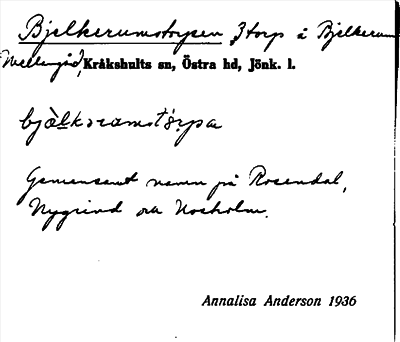 Bjelkerumstorpen 3 torp i Bjelkerum
Mellangård, Kråkshults sn, Östra hd, Jönk. l.
bjälkramstårpa
Gemensamt namn på Rosendal,
Nygrind och Noxholm.
Annalisa Anderson 1936